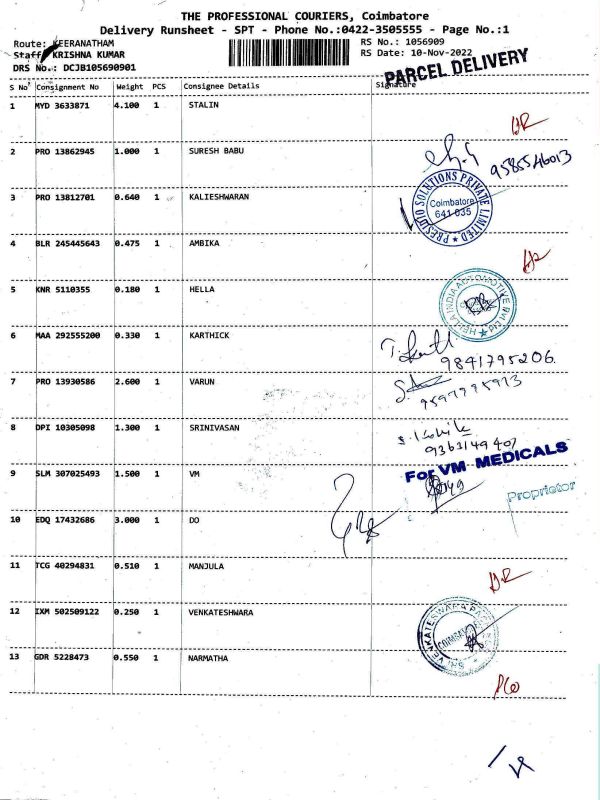 THE PROFESSIONAL COURIERS, Coimbatore
Delivery Runsheet - SPT - Phone No.:0422-3505555 - Page No.:1
Route: KEERANATHAM
RS No.: 1056909
Staff: KRISHNA KUMAR
RS Date: 10-Nov-2022
DRS No.: DCJB105690901
PARCEL DELIVERY
S No Consignment No Weight PCS Consignee Details Signature
1 MYD 3633871 4.100 1 STALIN
2 PRO 13862945 1.000 1 SURESH BABU
9585546013
3 PRO 13812701 0.640 1 KALIESHWARAN
PRESIDIO SOLUTIONS PRIVATE LIMITED
Coimbatore
641 035
4 BLR 245445643 0.475 1 AMBIKA
5 KNR 5110355 0.180 1 HELLA
HELLA INDIA AUTOMOTIVE PVT LTD
6 MAA 292555200 0.330 1 KARTHICK
9841795206
7 PRO 13930586 2.600 1 VARUN
8 DPI 10305098 1.300 1 SRINIVASAN
9363149407
For VM MEDICALS
9 SLM 307025493 1.500 1 VM
Proprietor
10 EDQ 17432686 3.000 1 DO
11 TCG 40294831 0.510 1 MANJULA
12 IXM 502509122 0.250 1 VENKATESHWARA
COIMBATORE
13 GDR 5228473 0.550 1 NARMATHA